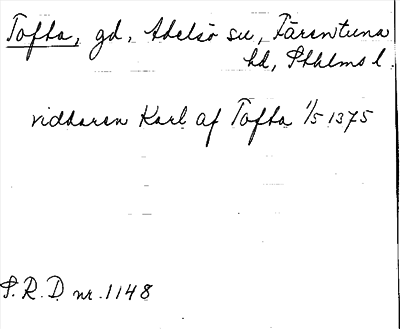 Tofta, gd, Adelsö sn, Färentuna
hd, Sthlms l.
riddaren Karl af Tofta 1/5 1375
S.R.D. nr. 1148